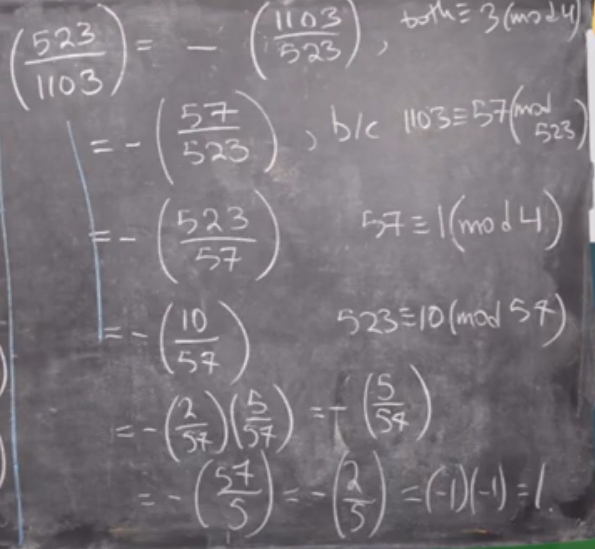 (523/1103) = - (1103/523), both ≡ 3 (mod 4)
= - (57/523), b/c 1103 ≡ 57 (mod 523)
= - (523/57) 57 ≡ 1 (mod 4)
= - (10/57) 523 ≡ 10 (mod 57)
= - (2/57)(5/57) = - (5/57)
= - (57/5) = - (2/5) = (-1)(-1) = 1.